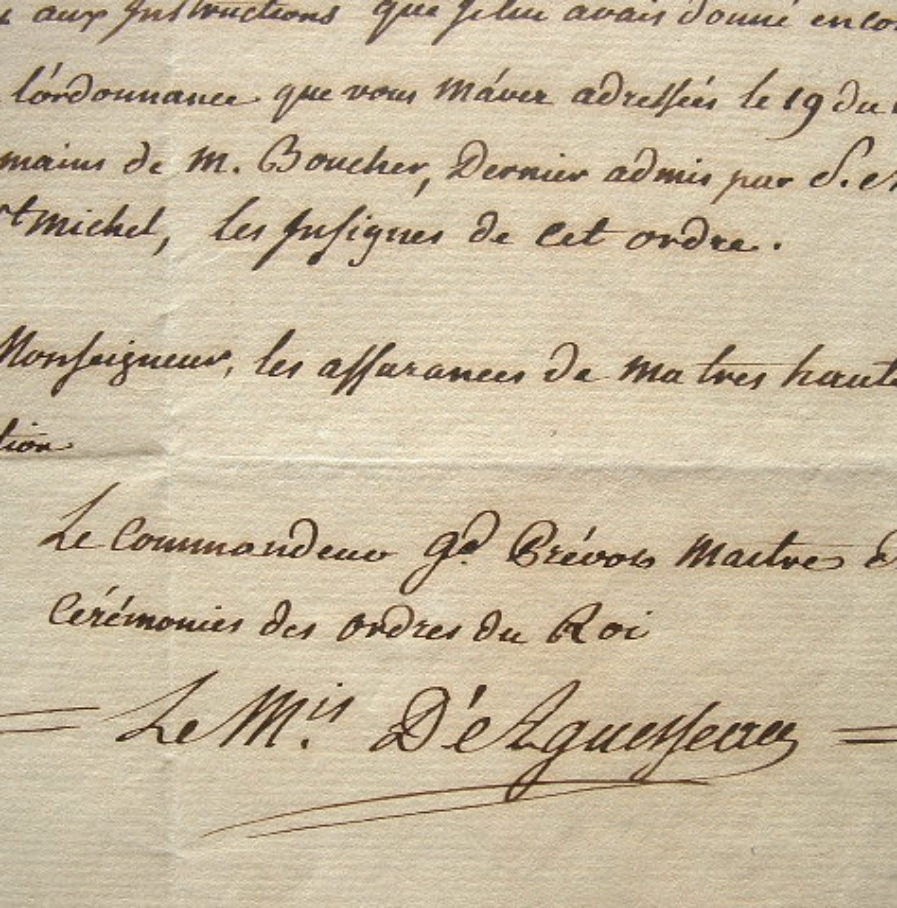 aux Instructions que je lui avais donné
l'ordonnance que vous m'avez adressées le 19 du
mains de M. Boucher, Dernier admis par S.
St Michel, les Insignes de cet ordre.
Monseigneur, les assurances de ma tres haute
tion
Le Commandeur gd. Prévost Maitre
Cérémonies des ordres du Roi
Le Mis. D'Aguesseau